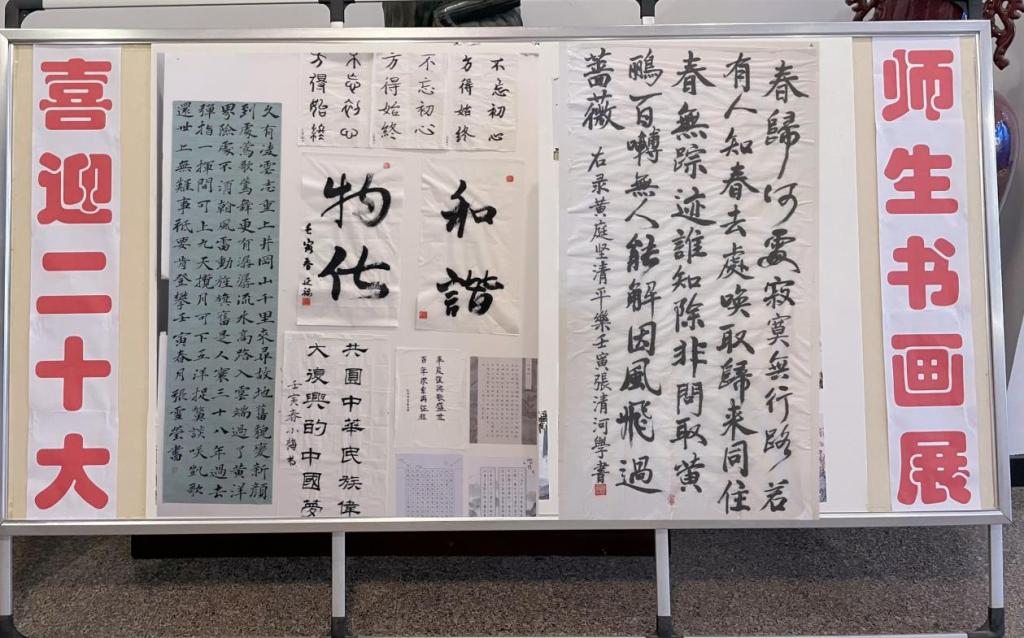 喜迎二十大
久有凌雲志重上井岡山千里來尋故地舊貌變新顏
到處鶯歌燕舞更有潺潺流水高路入雲端過了黃洋
界險處不須看風雷動旌旗奮是人寰三十八年過去
彈指一揮間可上九天攬月可下五洋捉鱉談笑凱歌
還世上無難事衹要肯登攀壬寅春月張雪瑩書
不忘初心
方得始終
不忘初心
方得始終
不忘初心
方得始終
和諧
物化
壬寅春
共圓中華民族偉
大復興的中國夢
壬寅春小梅书
百年求索再征程
春歸何處寂寞無行路若
有人知春去處喚取歸来同住
春無踪迹誰知除非問取黄
鸝百囀無人能解因風飛過
薔薇
右录黄庭坚清平樂壬寅張清河學書
师生书画展